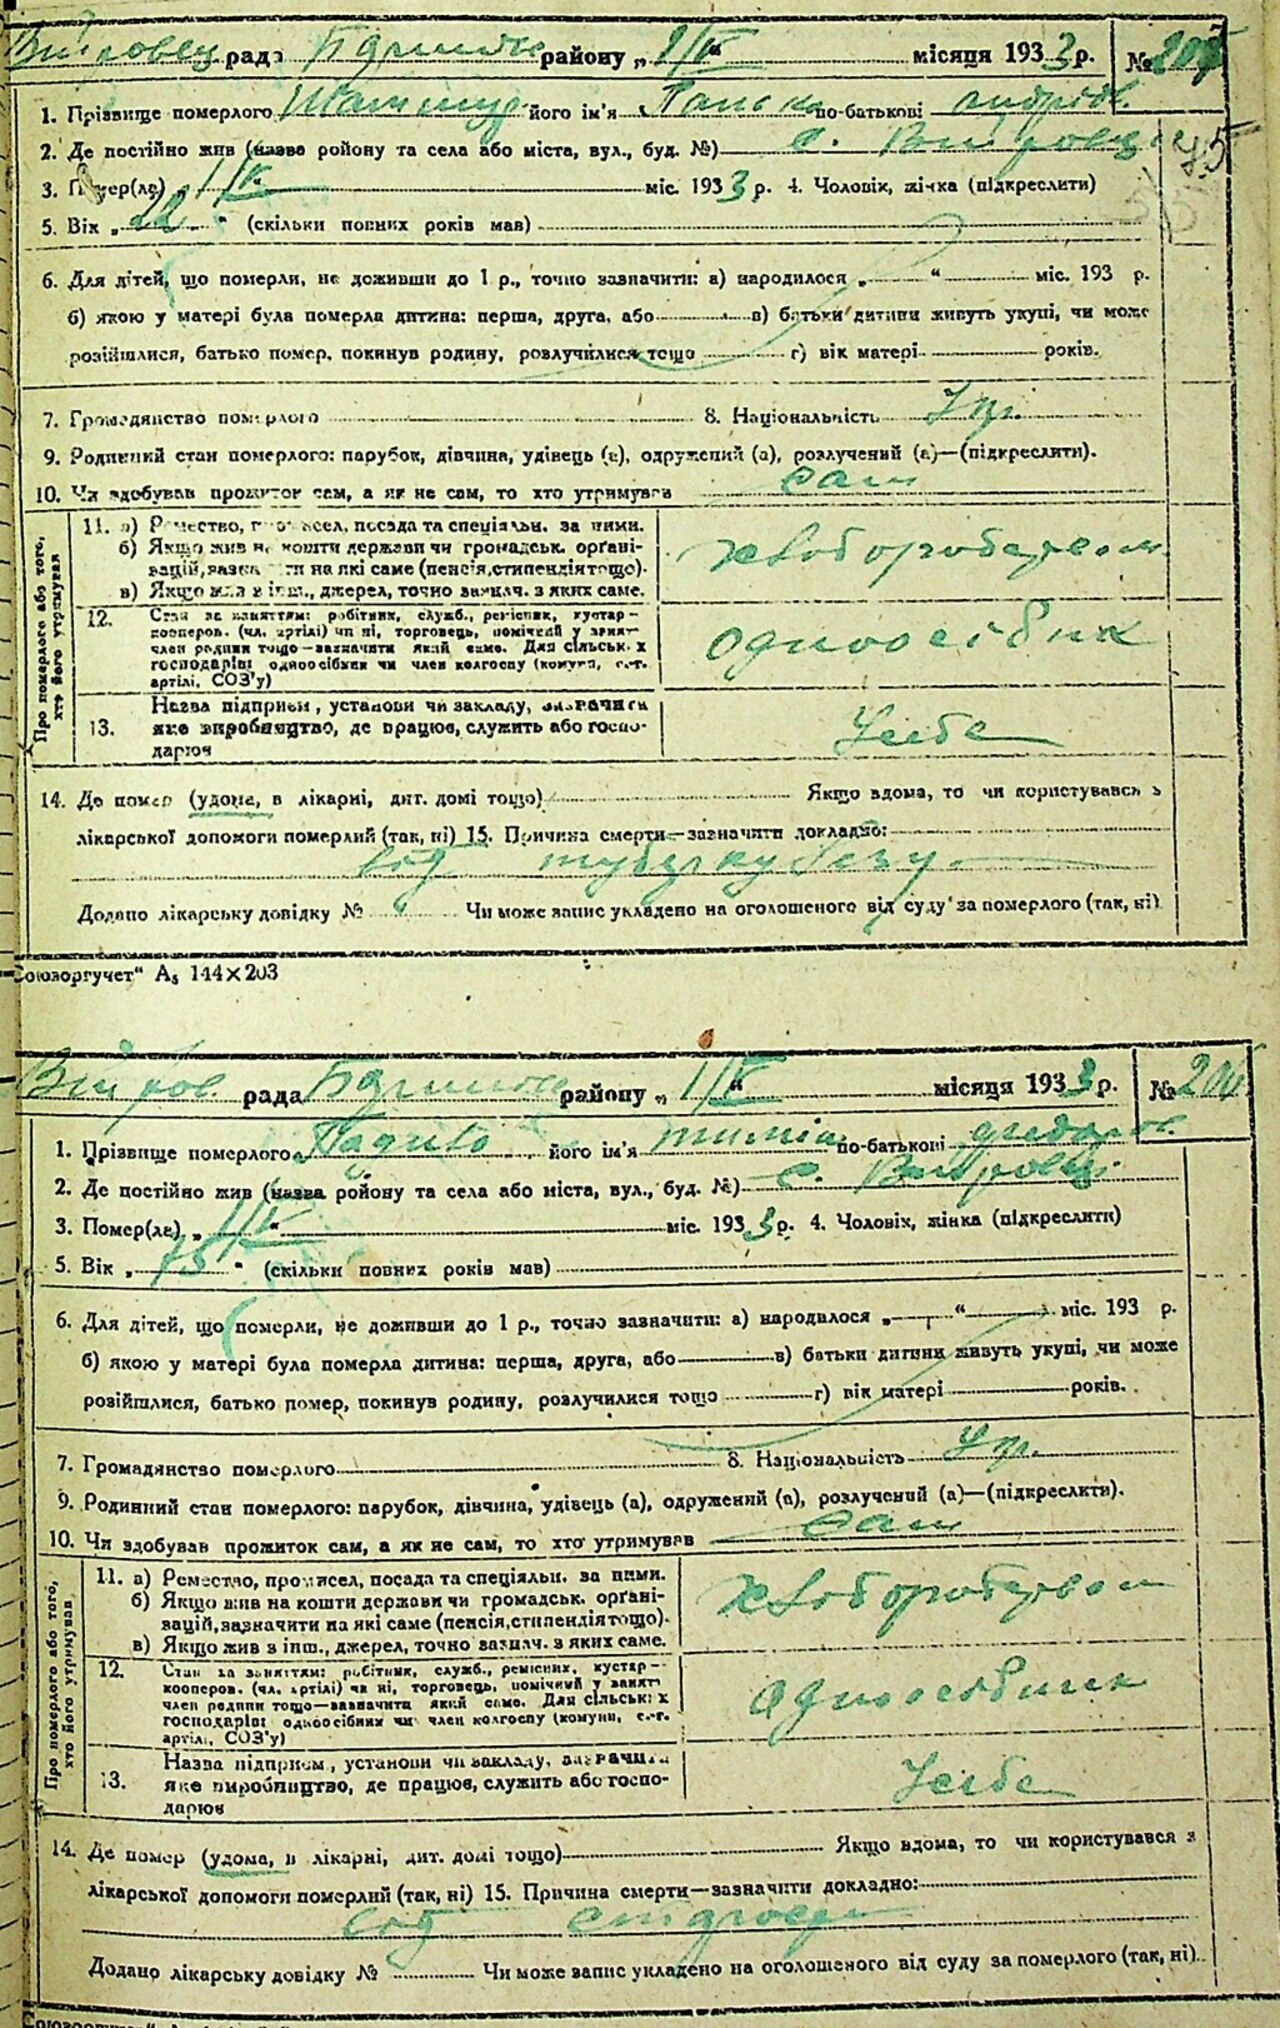 рада району „ 1/V “ місяця 1933 р. №
1. Прізвище померлого його ім'я по-батькові
2. Де постійно жив (назва ройону та села або міста, вул., буд. №) с.
3. Помер(ла) „ 1/V “ міс. 1933 р. 4. Чоловік, жінка (підкреслити)
5. Вік „ “ (скільки повних років мав)
6. Для дітей, що померли, не доживши до 1 р., точно зазначити: а) народилося „ “ міс. 193 р.
б) якою у матері була померла дитина: перша, друга, або в) батьки дитини живуть укупі, чи може
розійшлися, батько помер, покинув родину, розлучилися тощо г) вік матері років.
7. Громадянство померлого 8. Національність Укр.
9. Родинний стан померлого: парубок, дівчина, удівець (а), одружений (а), розлучений (а)—(підкреслити).
10. Чи здобував прожиток сам, а як не сам, то хто утримував сам
Про померлого або того,
хто його утримував
11. а) Ремество, промисел, посада та спеціяльн. за ними.
б) Якщо жив на кошти держави чи громадськ. органі-
зацій, зазначити на які саме (пенсія, стипендія тощо).
в) Якщо жив з інш., джерел, точно зазнач. з яких саме.
хлоборобством
12. Стан за заняттям: робітник, служб., ремісник, кустар-
кооперов. (чл. артілі) чи ні, торговець, помічний у занят.
член родини тощо—зазначити який саме. Для сільськ. х
господарів: одноосібник чи член колгоспу (комуни, с.-г.
артілі, СОЗ'у)
одноосібник
13. Назва підприєм, установи чи закладу, зазначити
яке виробництво, де працює, служить або госпо-
дарює
У себе
14. Де помер (удома, в лікарні, дит. домі тощо) Якщо вдома, то чи користувався з
лікарської допомоги померлий (так, ні) 15. Причина смерти—зазначити докладно:
від туберкульозу
Додано лікарську довідку № Чи може запис укладено на оголошеного від суду за померлого (так, ні)
Союзоргучет“ А₅ 144×203
рада району „ 1/V “ місяця 1933 р. № 206
1. Прізвище померлого його ім'я по-батькові
2. Де постійно жив (назва ройону та села або міста, вул., буд. №) с.
3. Помер(ла) „ 1/V “ міс. 1933 р. 4. Чоловік, жінка (підкреслити)
5. Вік „ 75 “ (скільки повних років мав)
6. Для дітей, що померли, не доживши до 1 р., точно зазначити: а) народилося „ “ міс. 193 р.
б) якою у матері була померла дитина: перша, друга, або в) батьки дитини живуть укупі, чи може
розійшлися, батько помер, покинув родину, розлучилися тощо г) вік матері років.
7. Громадянство померлого 8. Національність Укр.
9. Родинний стан померлого: парубок, дівчина, удівець (а), одружений (а), розлучений (а)—(підкреслити).
10. Чи здобував прожиток сам, а як не сам, то хто утримував сам
Про померлого або того,
хто його утримував
11. а) Ремество, промисел, посада та спеціяльн. за ними.
б) Якщо жив на кошти держави чи громадськ. органі-
зацій, зазначити на які саме (пенсія, стипендія тощо).
в) Якщо жив з інш., джерел, точно зазнач. з яких саме.
хлоборобством
12. Стан за заняттям: робітник, служб., ремісник, кустар-
кооперов. (чл. артілі) чи ні, торговець, помічний у занят.
член родини тощо—зазначити який саме. Для сільськ. х
господарів: одноосібник чи член колгоспу (комуни, с.-г.
артілі, СОЗ'у)
одноосібник
13. Назва підприєм, установи чи закладу, зазначити
яке виробництво, де працює, служить або госпо-
дарює
У себе
14. Де помер (удома, в лікарні, дит. домі тощо) Якщо вдома, то чи користувався з
лікарської допомоги померлий (так, ні) 15. Причина смерти—зазначити докладно:
від
Додано лікарську довідку № Чи може запис укладено на оголошеного від суду за померлого (так, ні)